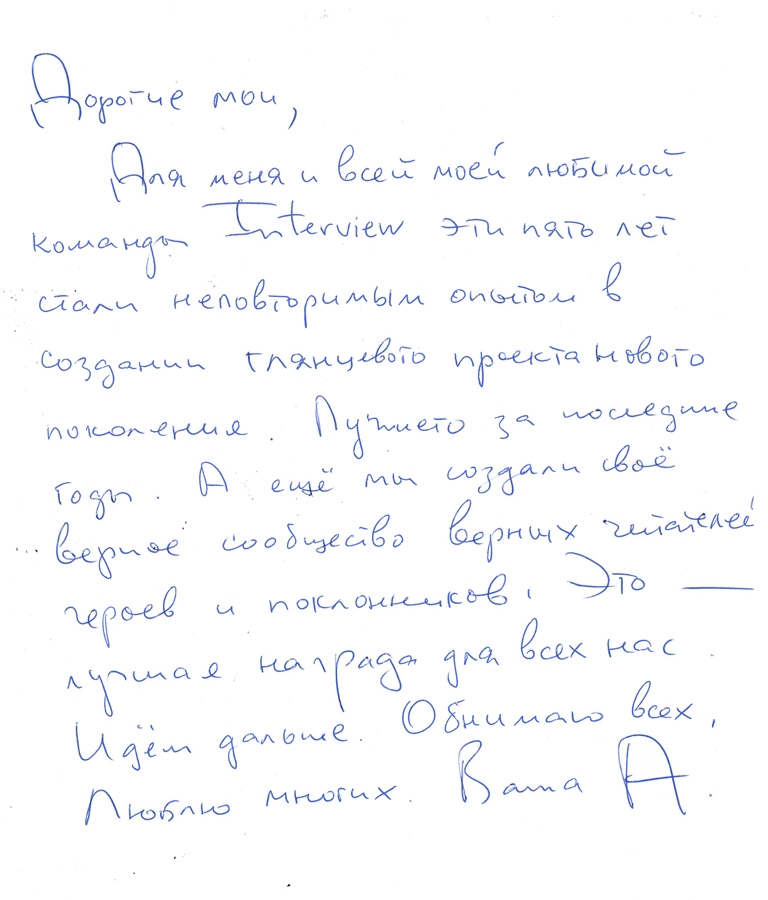 Дорогие мои,
Для меня и всей моей любимой
команды Interview эти пять лет
стали неповторимым опытом в
создании глянцевого проекта нового
поколения. Лучшего за последние
годы. А ещё мы создали своё
верное сообщество верных читателей
героев и поклонников. Это —
лучшая награда для всех нас.
Идём дальше. Обнимаю всех,
Люблю многих. Ваша А.